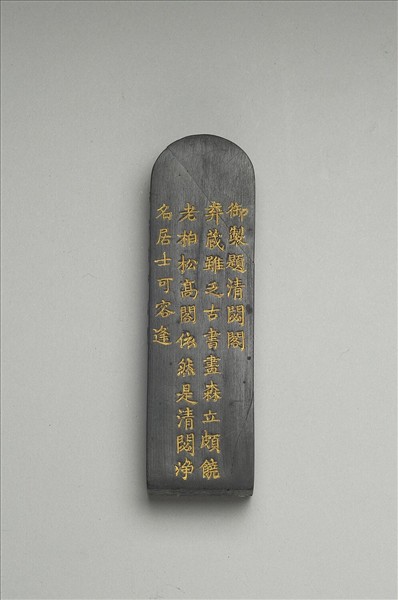 御製題清閟閣
弆藏雖乏古書畫森立頗饒
老柏松高閣依然是清閟淨
名居士可容逢